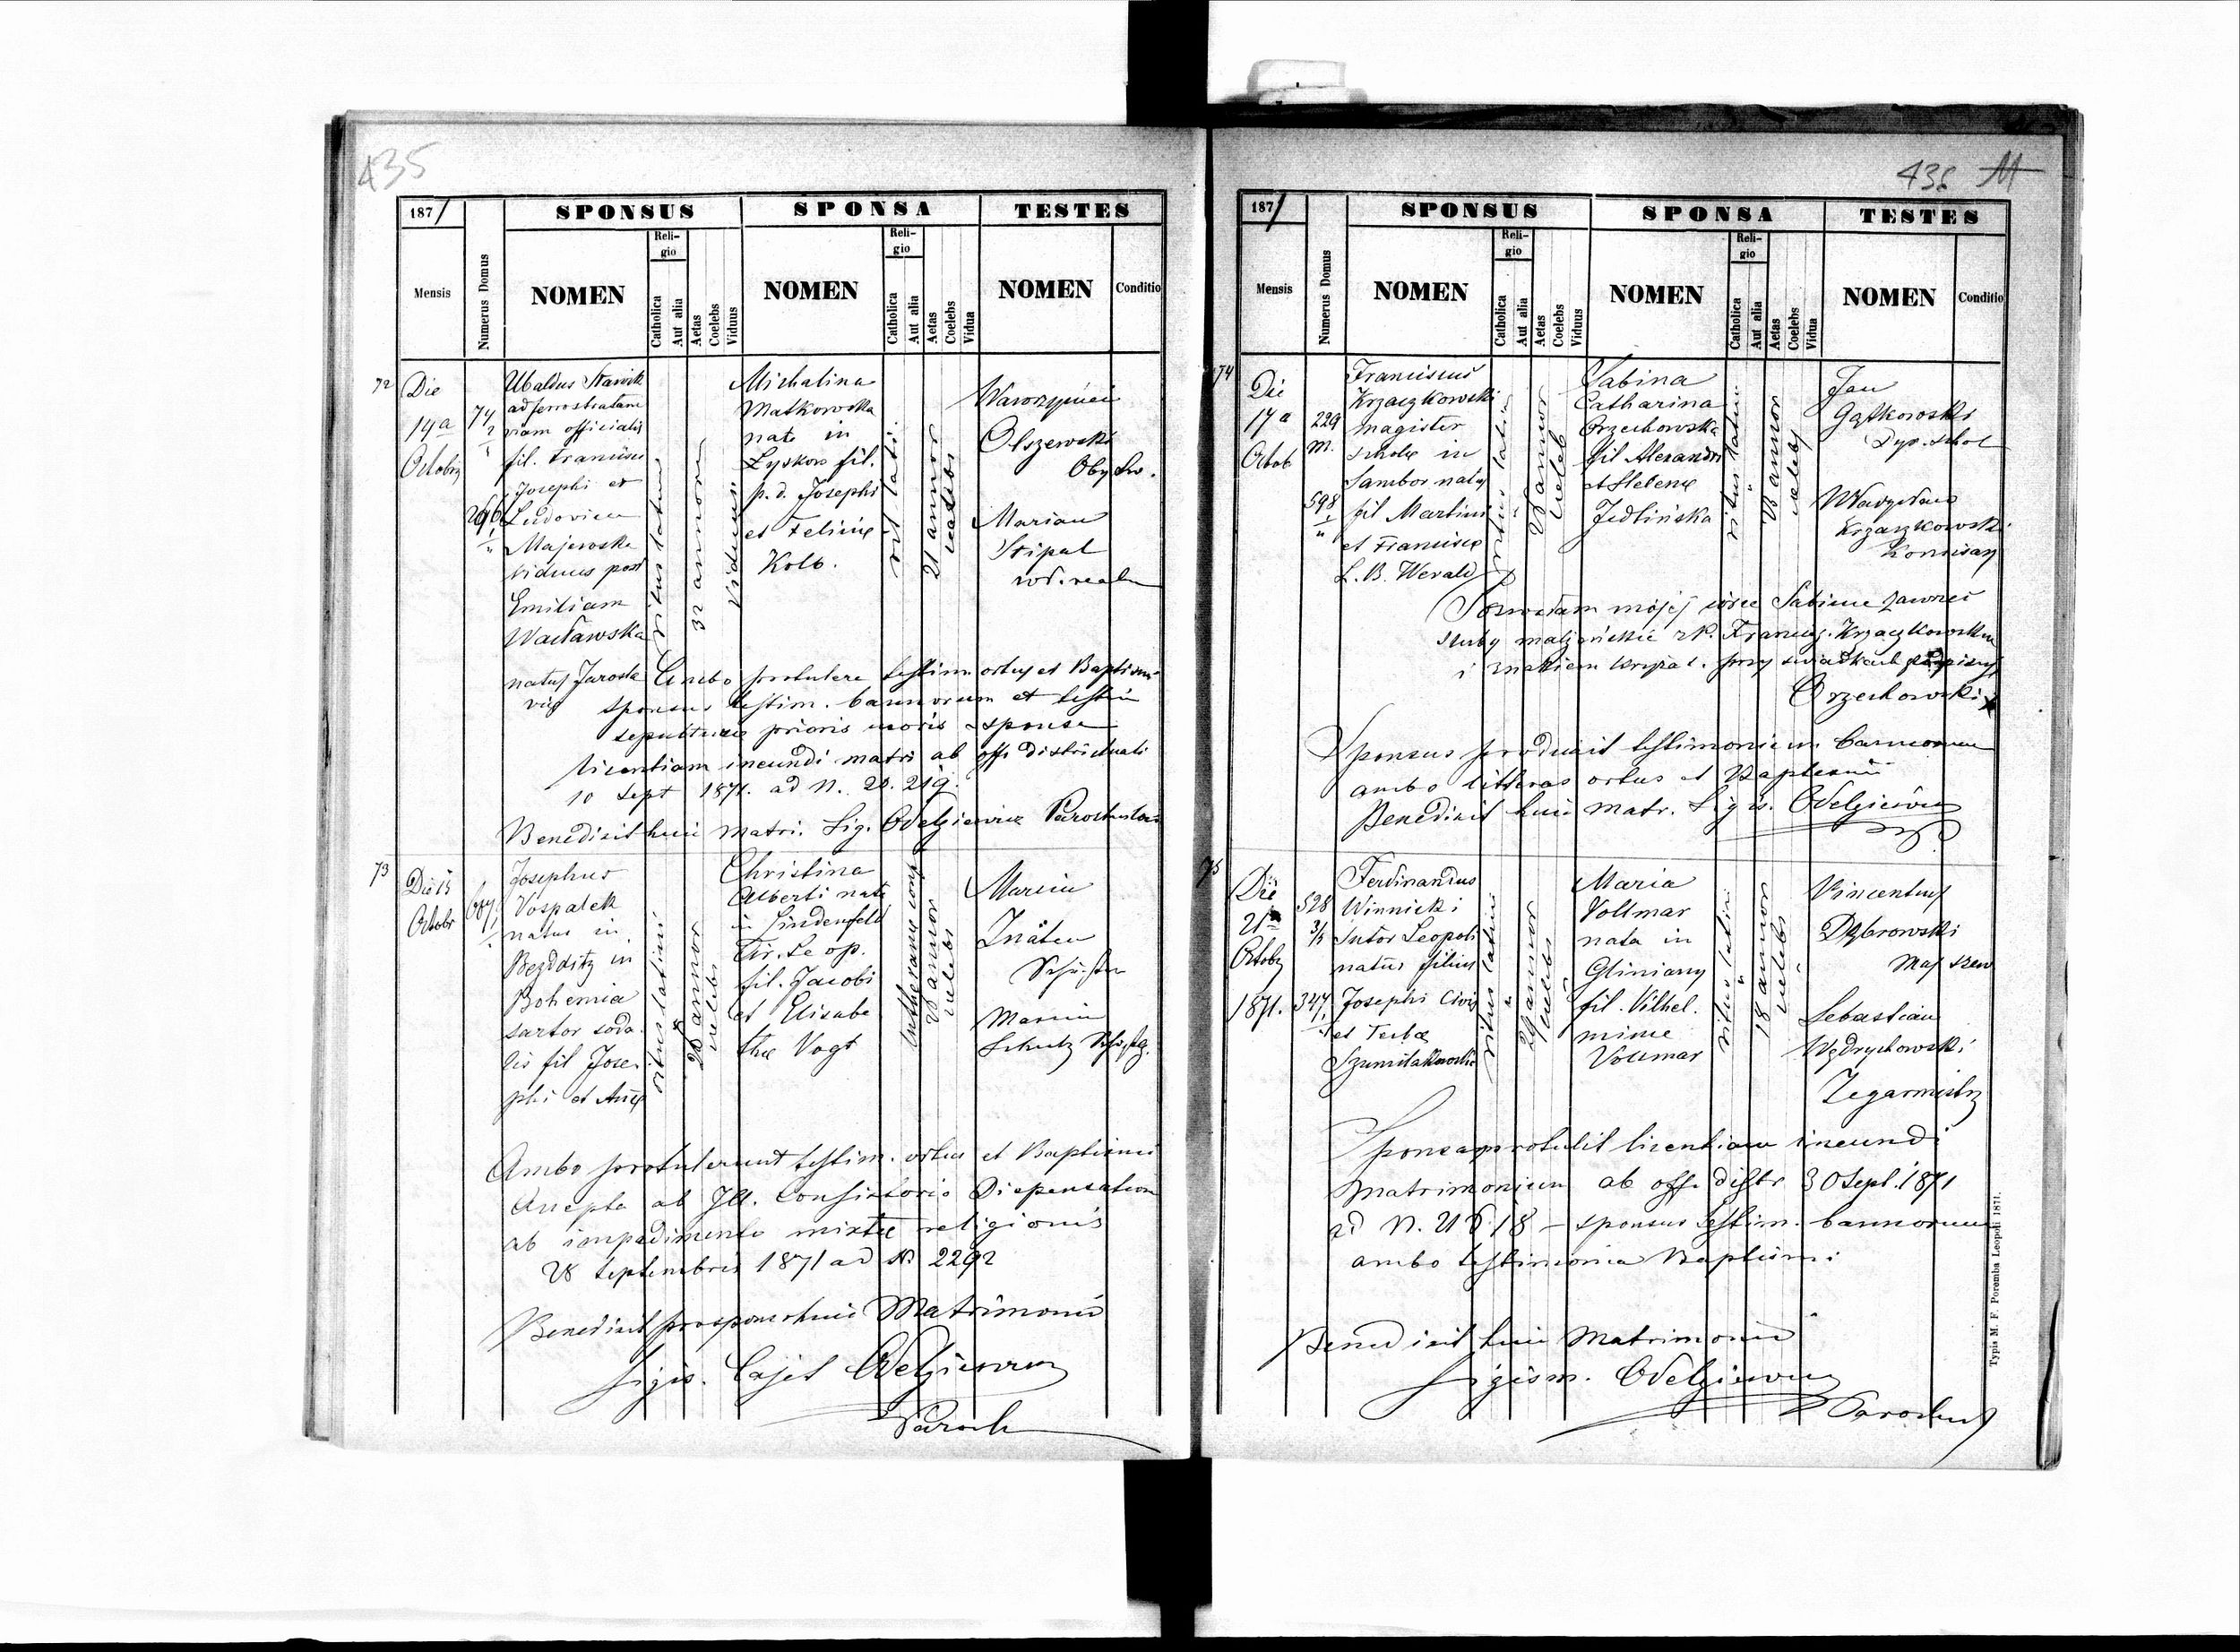 435
1871
SPONSUS
SPONSA
TESTES
Mensis
Numerus Domus
NOMEN
Religio
Catholica
Aut alia
Aetas
Coelebs
Viduus
NOMEN
Religio
Catholica
Aut alia
Aetas
Coelebs
Vidua
NOMEN
Conditio
72
Die
14a
Octobr
74
Ubaldus Stawik
ad ferrostratam
viam officialis
fil. Francisci
Josephi et
Ludovica
Majewska
viduus post
Emiliam
Wacławska
natus Jarosla
viæ
ritus latini
32 annorum
viduus
Michalina
Matkowska
nata in
Lyskow fil.
p. d. Josephi
et Feliciæ
Kolb.
rit lati
21 annor
coelebs
Wawrzyniec
Olszewski
Oby Lw.
Marian
Stipal
wł. realn
Ambo protulere testim ortus et Baptismi
sponsus testim. bannorum et testim
sepulturæ prioris uxoris sponsa
licentiam ineundi matri ab offo districtuali
10 Sept 1871. ad N. 20.219.
Benedixit huic matri. Sig. Odelgiewicz Parochus loci
73
Die 15
Octobr
Josephus
Vospalek
natus in
Bezdditz in
Bohemia
sartor soda
lis fil Jose
phi et Annæ
ritus latini
28 annor
coelebs
Christina
Alberti nata
in Lindenfeld
Cir. Leop.
fil. Jacobi
et Elisabe
thæ Vogt
28 annor
coelebs
Marcin
Schuster
Marcin
Schutz
Ambo protulerunt testim. ortus et Baptismi
Accepta ab Ill. Consistorio Dispensation
ab impedimento mixtæ religionis
28 Septembris 1871 ad N. 2292
Benedixit huic Matrimonio
Sigis. Cajet Odelgiewicz
Paroch
436
1871
SPONSUS
SPONSA
TESTES
Mensis
Numerus Domus
NOMEN
Religio
Catholica
Aut alia
Aetas
Coelebs
Viduus
NOMEN
Religio
Catholica
Aut alia
Aetas
Coelebs
Vidua
NOMEN
Conditio
74
Die
17a
Octob
229
m.
598
Franciscus
Krzaczkowski
magister
scholæ in
Sambor natus
fil Martini
et Franciscæ
L. B. Werald
ritus latini
28 annor
coeleb
Sabina
Catharina
Orzechowska
fil Alexandri
et Helenæ
Jedlińska
ritus latini
18 annor
coelebs
Jan
Gątkowski
Dyr. szkol
Władysław
Krzaczkowski
Komisarz
Pozwalam mojej córce Sabinie zawrzeć
śluby małżeńskie z P. Francisz. Krzaczkowskim
i znakiem krzyża t. przy świadkach podpisuję
Orzechowski
Sponsus produxit testimonium bannorum
ambo litteras ortus et Baptismi
Benedixit huic matr. Sigis. Odelgiewicz
75
Die
21a
Octobr
1871.
528
3/4
347
Ferdinandus
Winnicki
sutor Leopoli
natus filius
Josephi Civis
et Teclæ
ritus latini
coelebs
Maria
Vollmar
nata in
Gliniany
fil. Vilhel.
minæ
Vollmar
ritus latini
18 annor
coelebs
Vincentius
Dąbrowski
Maj szew
Sebastian
Wędrychowski
Zegarmistrz
Sponsa protulit licentiam ineundi
matrimonium ab offo distr 30 Sept. 1871
sponsus testim. bannorum
ambo testimonia Baptismi
Benedixit huic Matrimonio
Sigism. Odelgiewicz
Parochus
Typis M. F. Poremba Leopoli 1871.